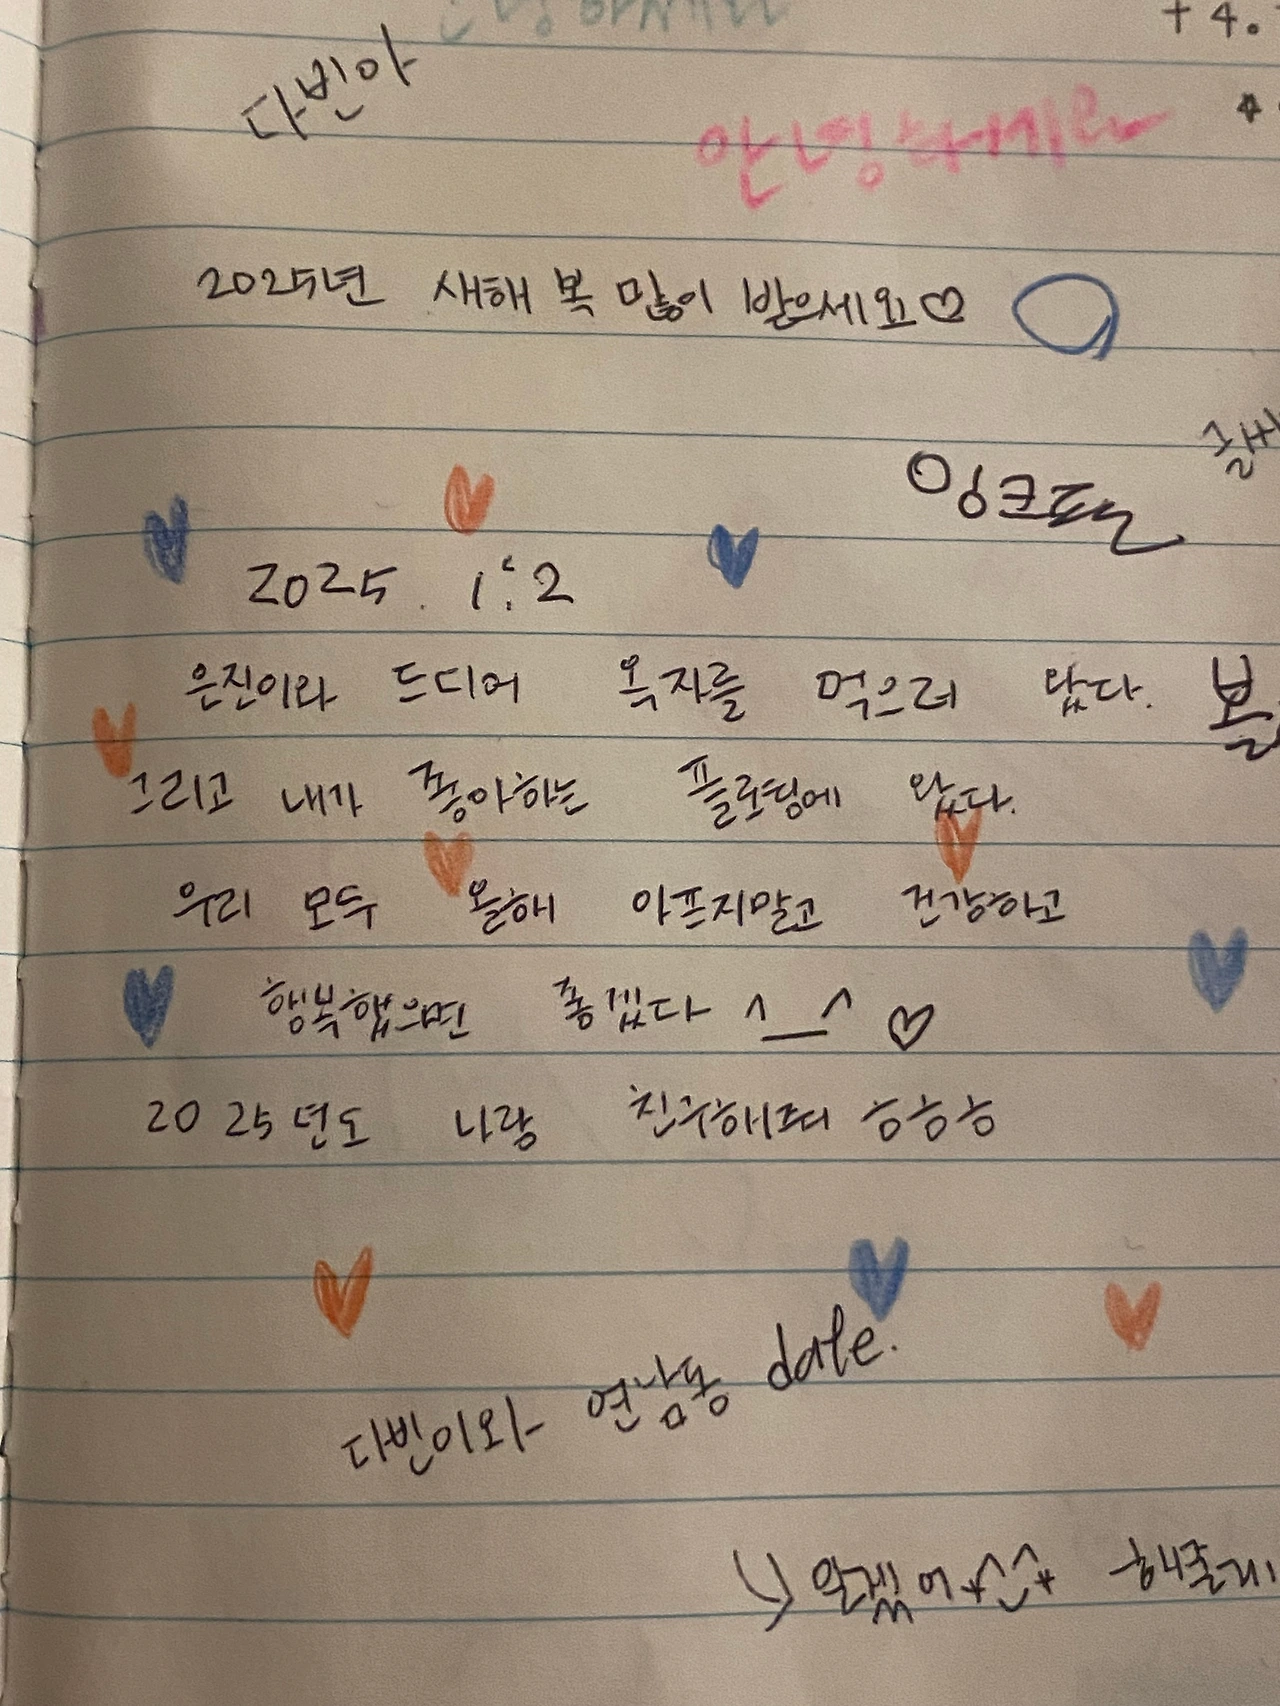 안녕하세요
+ 4.
다빈아
안녕하세요
2025년 새해 복 많이 받으세요♡
잉크펜
글씨
2025. 1. 2
은진이와 드디어 옥자를 먹으러 왔다.
볼
그리고 내가 좋아하는 플로팅에 왔다.
우리 모두 올해 아프지말고 건강하고
행복했으면 좋겠다 ^_^ ♡
2025년도 나랑 친구해쪄 ㅎㅎㅎ
다빈이와 연남동 date.
↳ 알겠어 해줄게